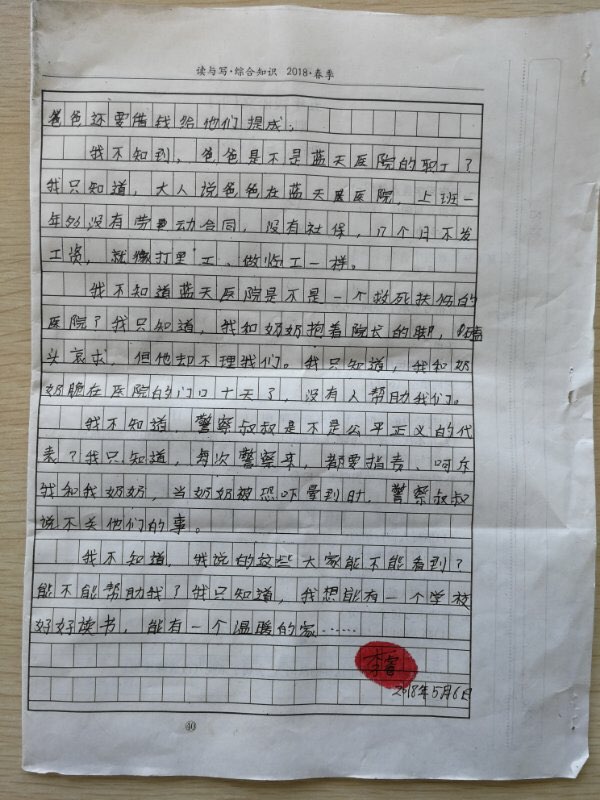 读与写·综合知识 2018·春季
爸爸还要借钱给他们提成。
我不知到，爸爸是不是蓝天医院的职工？
我只知道，大人说爸爸在蓝天医院，上班一
年多，没有劳动合同，没有社保，17个月不发
工资，就像打黑工、做临工一样。
我不知道蓝天医院是不是一个救死扶伤的
医院？我只知道，我和奶奶抱着院长的脚，磕
头哀求，但他却不理我们。我只知道，我和奶
奶跪在医院的门口十天了，没有人帮助我们。
我不知道，警察叔叔是不是公平正义的代
表？我只知道，每次警察来，都要指责、呵斥
我和我奶奶，当奶奶被恐吓晕到时，警察叔叔
说不关他们的事。
我不知道，我说的这些大家能不能看到？
能不能帮助我？我只知道，我想能有一个学校
好好读书，能有一个温暖的家……
李
2018年5月6日
40